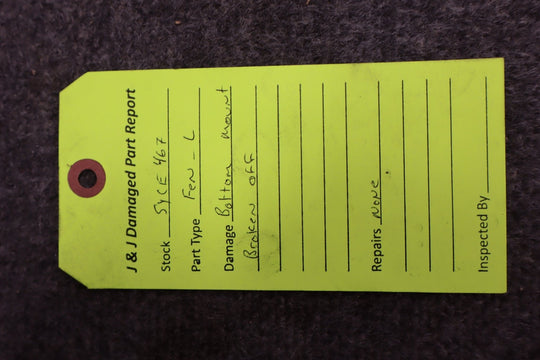 J & J Damaged Part Report
Stock SYCE 467
Part Type Fen - L
Damage Bottom mount
Broken off
Repairs None
Inspected By